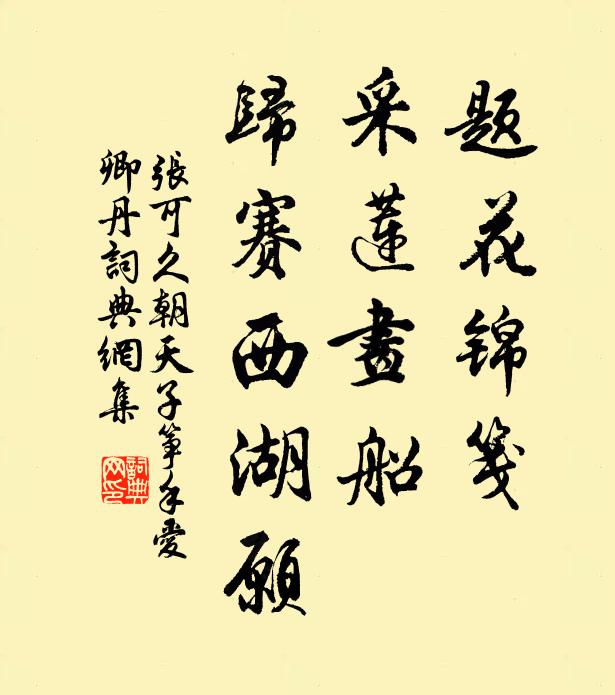 題花锦箋
采蓮畫船
歸賽西湖願
張可久朝天子筝手愛
卿丹詞典網集
詞典網印